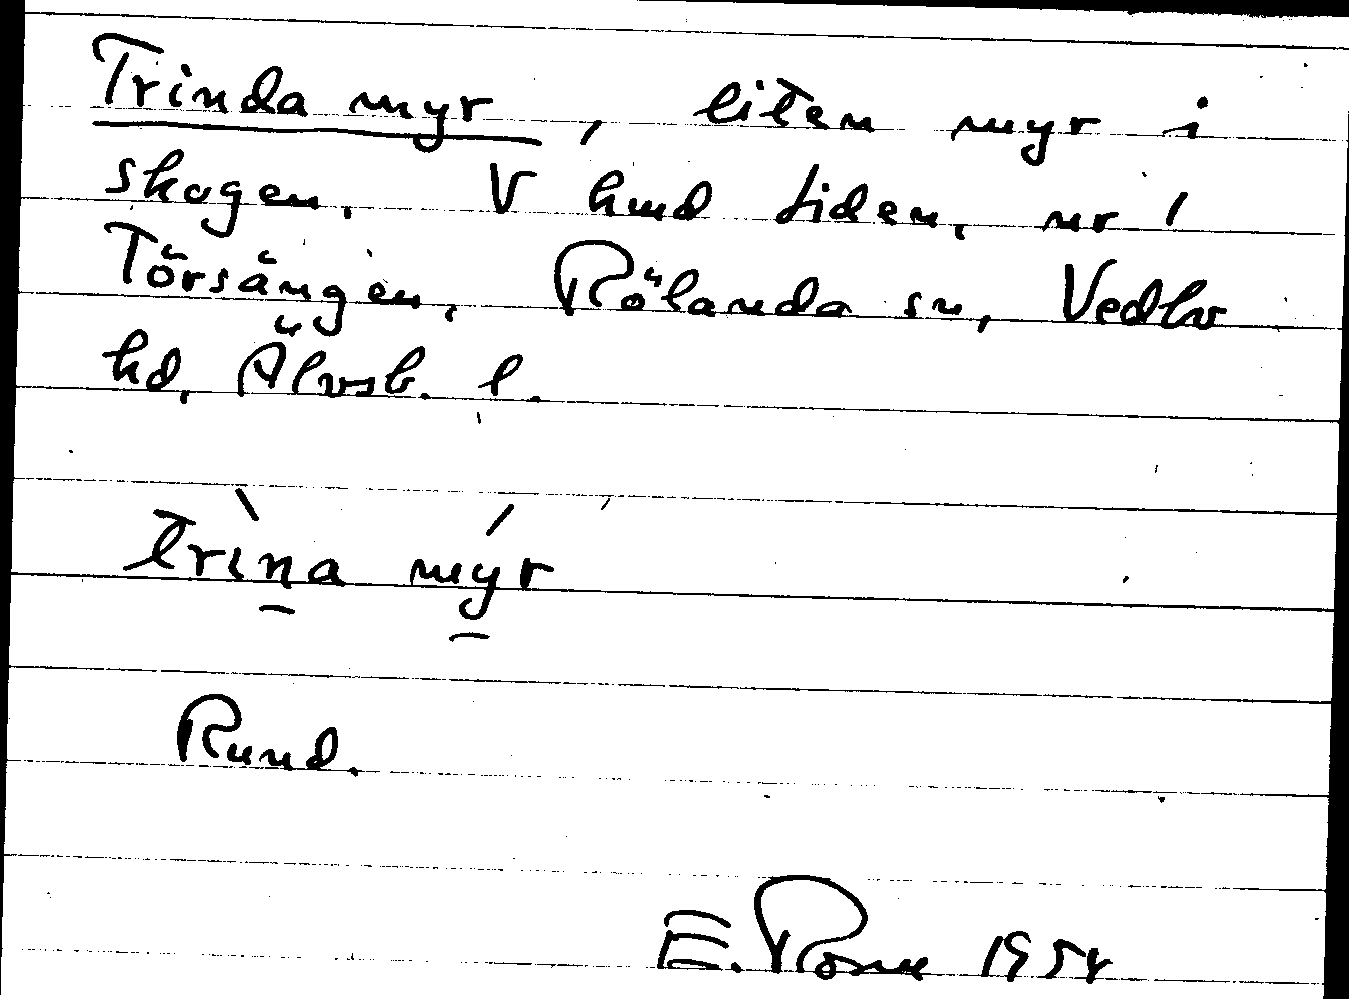 Trinda myr, liten myr i
skogen. V hmd Liden, nr 1
Törsängen, Rölanda sn, Vedbo
hd, Älvsb. l.
trìna mýr
Rund.
E. 1954